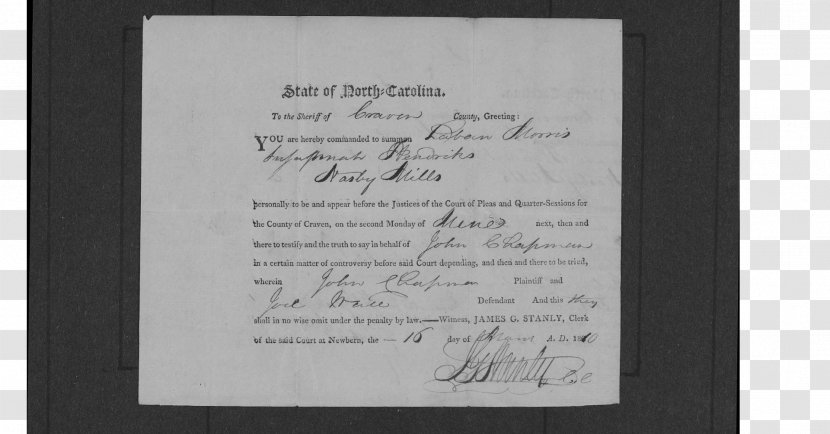 State of North-Carolina.
To the Sheriff of Craven County, Greeting:
YOU are hereby commanded to summon Laban Morris
Hendriks
Nasby Mills
personally to be and appear before the Justices of the Court of Pleas and Quarter-Sessions for
the County of Craven, on the second Monday of next, then and
there to testify and the truth to say in behalf of John Chapman
in a certain matter of controversy before said Court depending, and then and there to be tried,
wherein John Chapman Plaintiff and
Joel Defendant And this they
shall in no wise omit under the penalty by law.—Witness, JAMES G. STANLY, Clerk
of the said Court at Newbern, the — 16 day of A. D. 1810